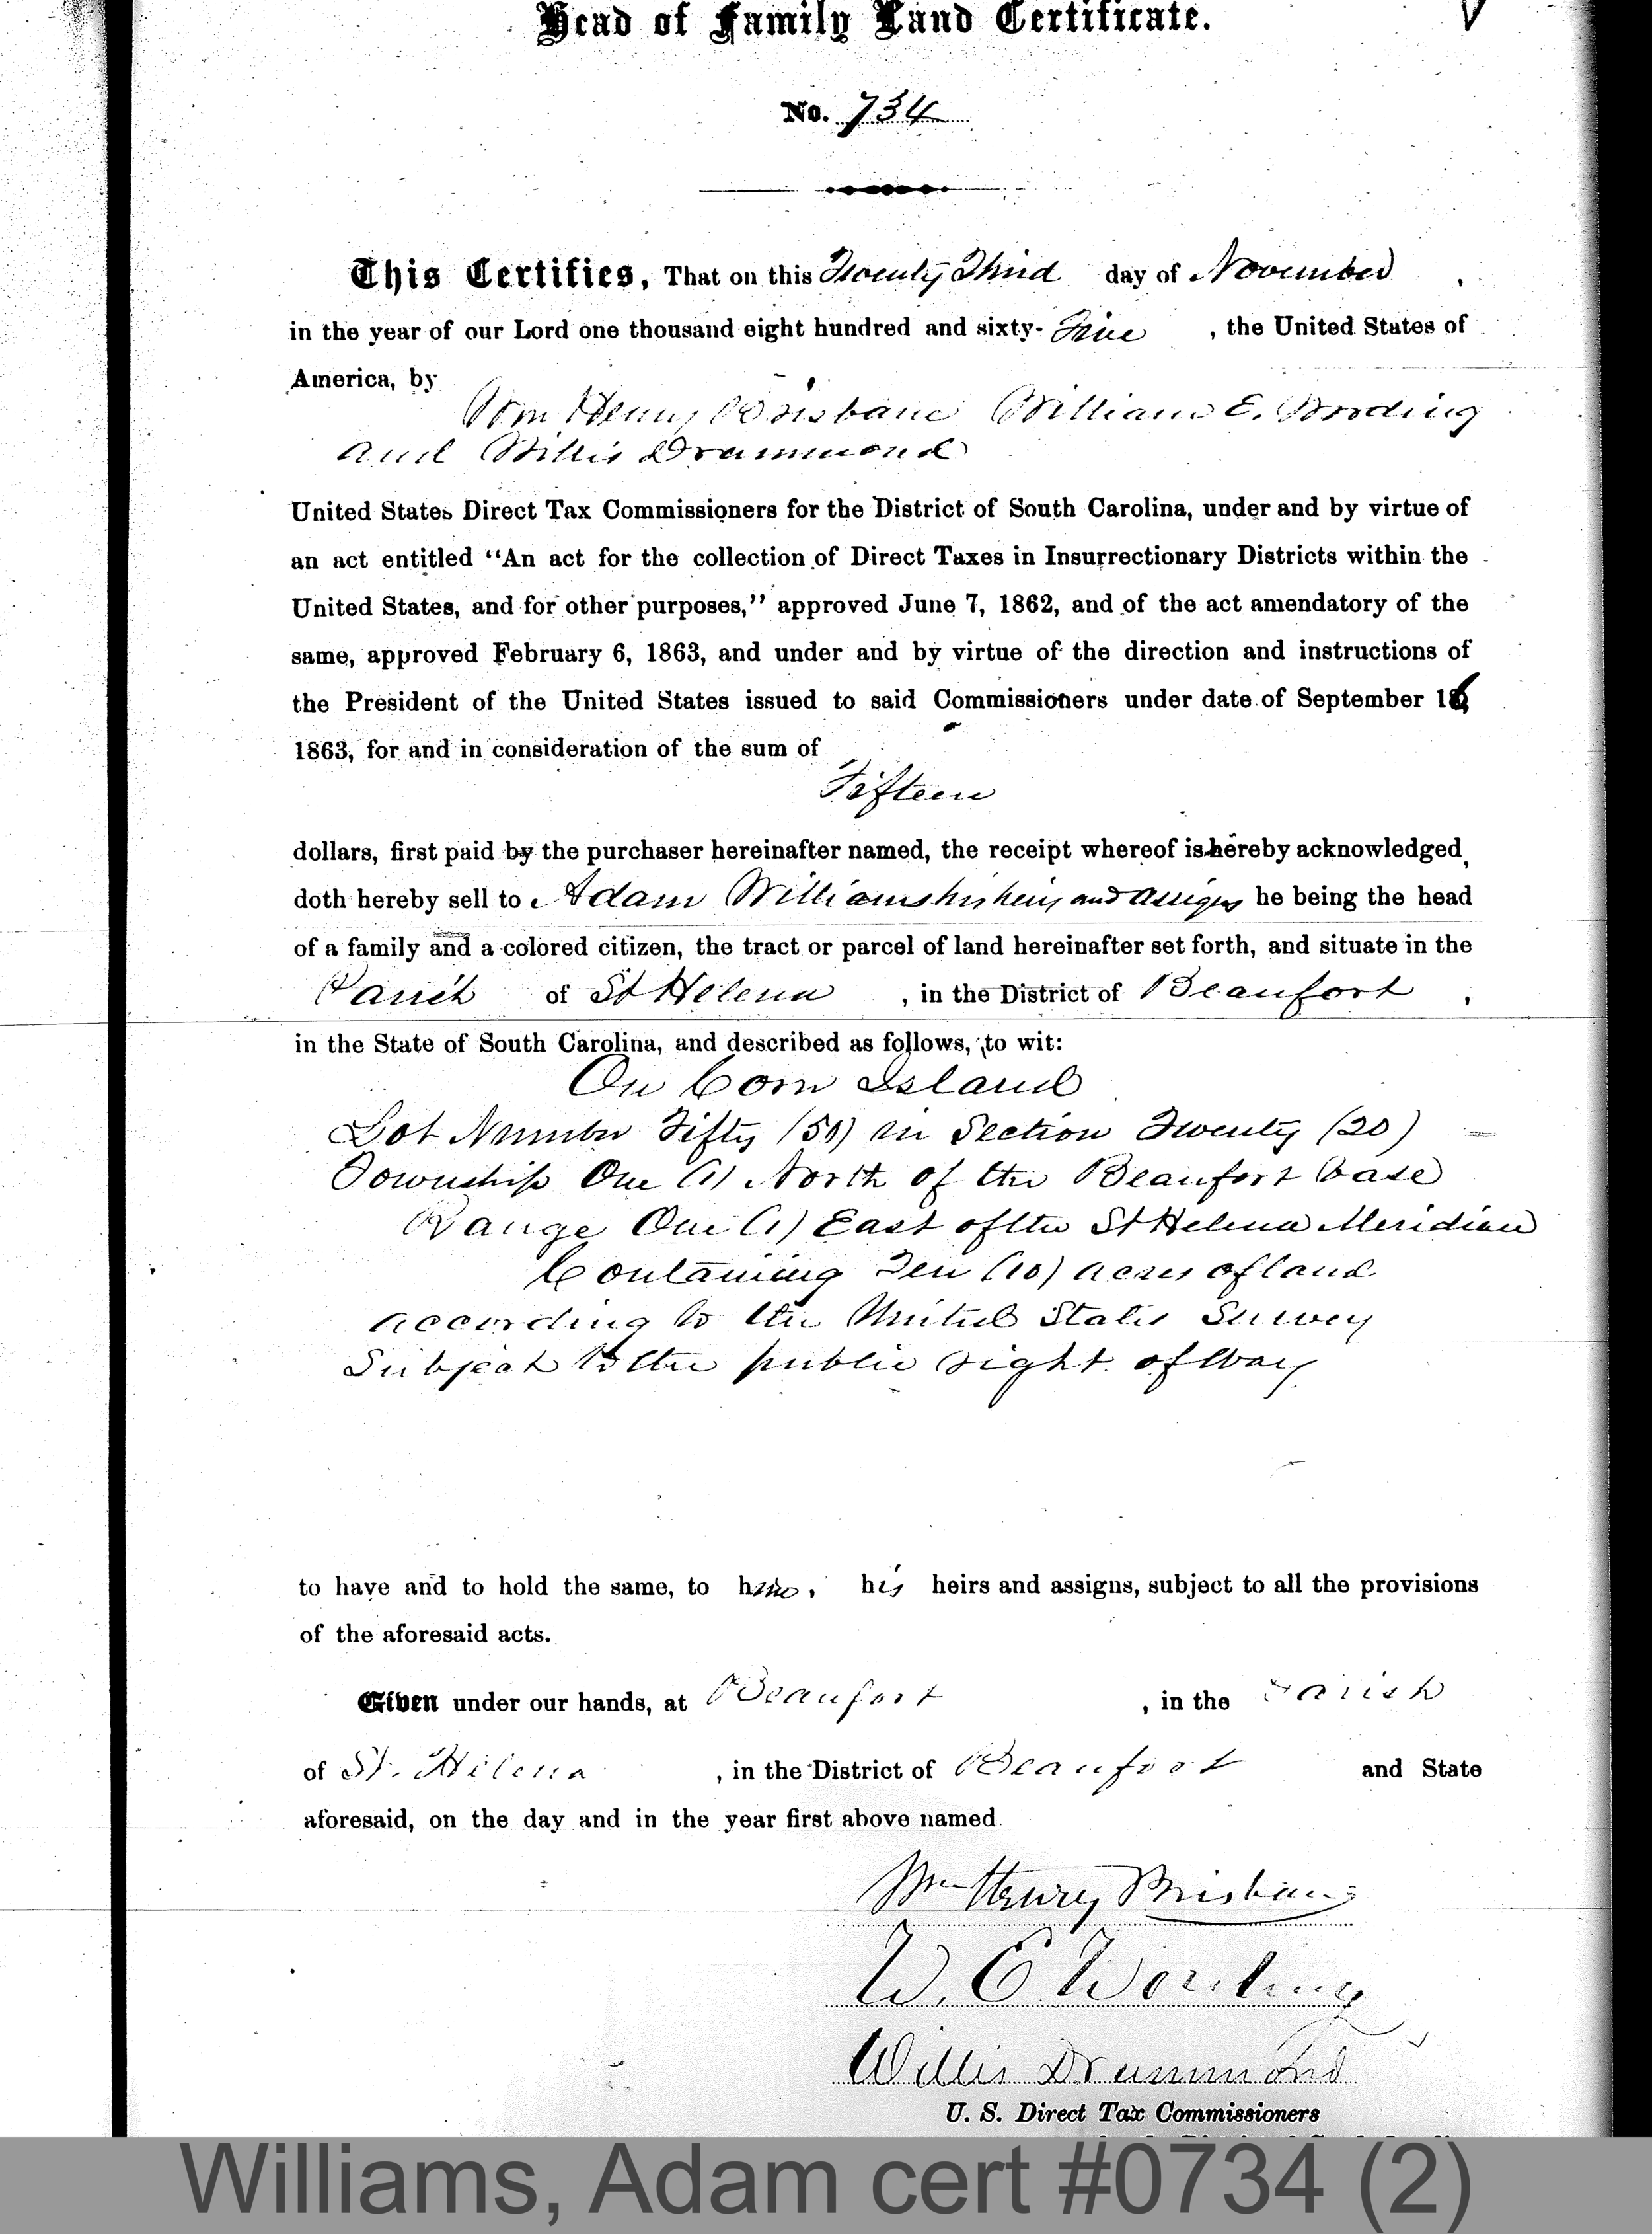 Head of Family Land Certificate.
No. 734
This Certifies, That on this Twenty Third day of November ,
in the year of our Lord one thousand eight hundred and sixty-Five , the United States of
America, by
Wm Henry Brisbane William E. Wording
and Willis Drummond
United States Direct Tax Commissioners for the District of South Carolina, under and by virtue of
an act entitled “An act for the collection of Direct Taxes in Insurrectionary Districts within the
United States, and for other purposes,” approved June 7, 1862, and of the act amendatory of the
same, approved February 6, 1863, and under and by virtue of the direction and instructions of
the President of the United States issued to said Commissioners under date of September 16,
1863, for and in consideration of the sum of
Fifteen
dollars, first paid by the purchaser hereinafter named, the receipt whereof is hereby acknowledged,
doth hereby sell to Adam Williams his heirs and assigns he being the head
of a family and a colored citizen, the tract or parcel of land hereinafter set forth, and situate in the
Parish of St Helena , in the District of Beaufort ,
in the State of South Carolina, and described as follows, to wit:
On Corn Island
Lot Number Fifty (50) in Section Twenty (20)
Township One (1) North of the Beaufort base
Range One (1) East of the St Helena Meridian
Containing Ten (10) acres of land
according to the United States Survey
Subject to the public right of way
to have and to hold the same, to him, his heirs and assigns, subject to all the provisions
of the aforesaid acts.
Given under our hands, at Beaufort , in the Parish
of St. Helena , in the District of Beaufort and State
aforesaid, on the day and in the year first above named.
Wm Henry Brisbane
W. E. Wording
Willis Drummond
U. S. Direct Tax Commissioners
Williams, Adam cert #0734 (2)